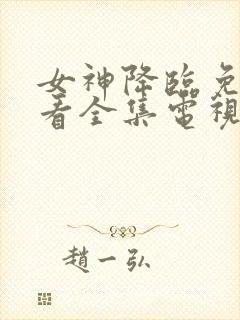 女神降臨免
看全集電視
趙一弘